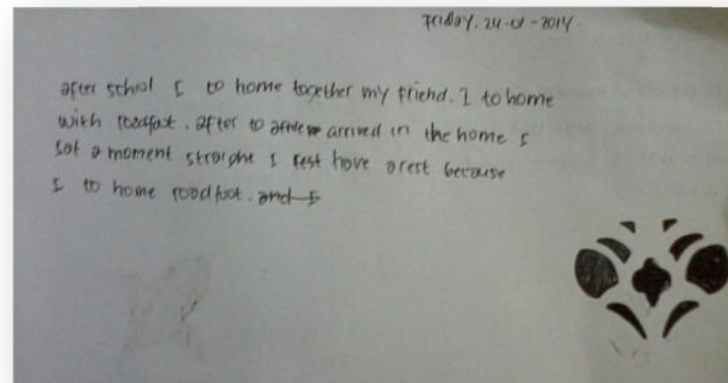 Friday. 24-01-2014
after school I to home together my friend. I to home
with roadfoot. after to arrived in the home I
sat a moment straighe I rest have arest because
I to home roadfoot. and I